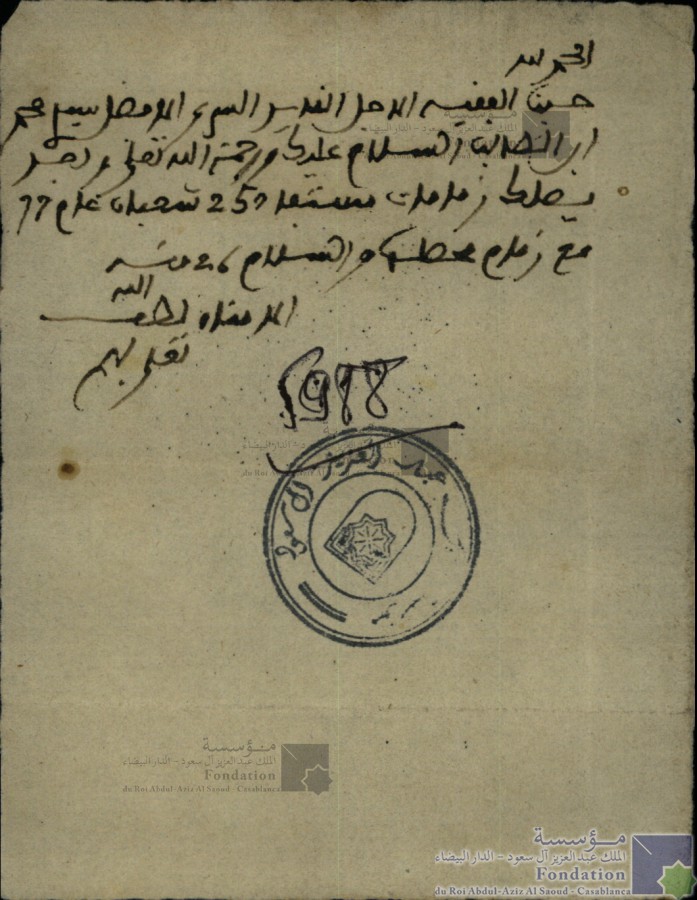 الحمد لله
حبنا الفقيه الاجل السيد الافضل سيدي محمد
ابن الطالب السلام عليك ورحمة الله تعلى وبعد
يصلك زمامات 25 شعبان عام 77
مع زمام والسلام 26 منه
الامناء لطف الله
تعلى بهم
1988
عبد العزيز آل سعود
مؤسسة
الملك عبد العزيز آل سعود - الدار البيضاء
Fondation
du Roi Abdul-Aziz Al Saoud - Casablanca
مؤسسة
الملك عبد العزيز آل سعود - الدار البيضاء
Fondation
du Roi Abdul-Aziz Al Saoud - Casablanca